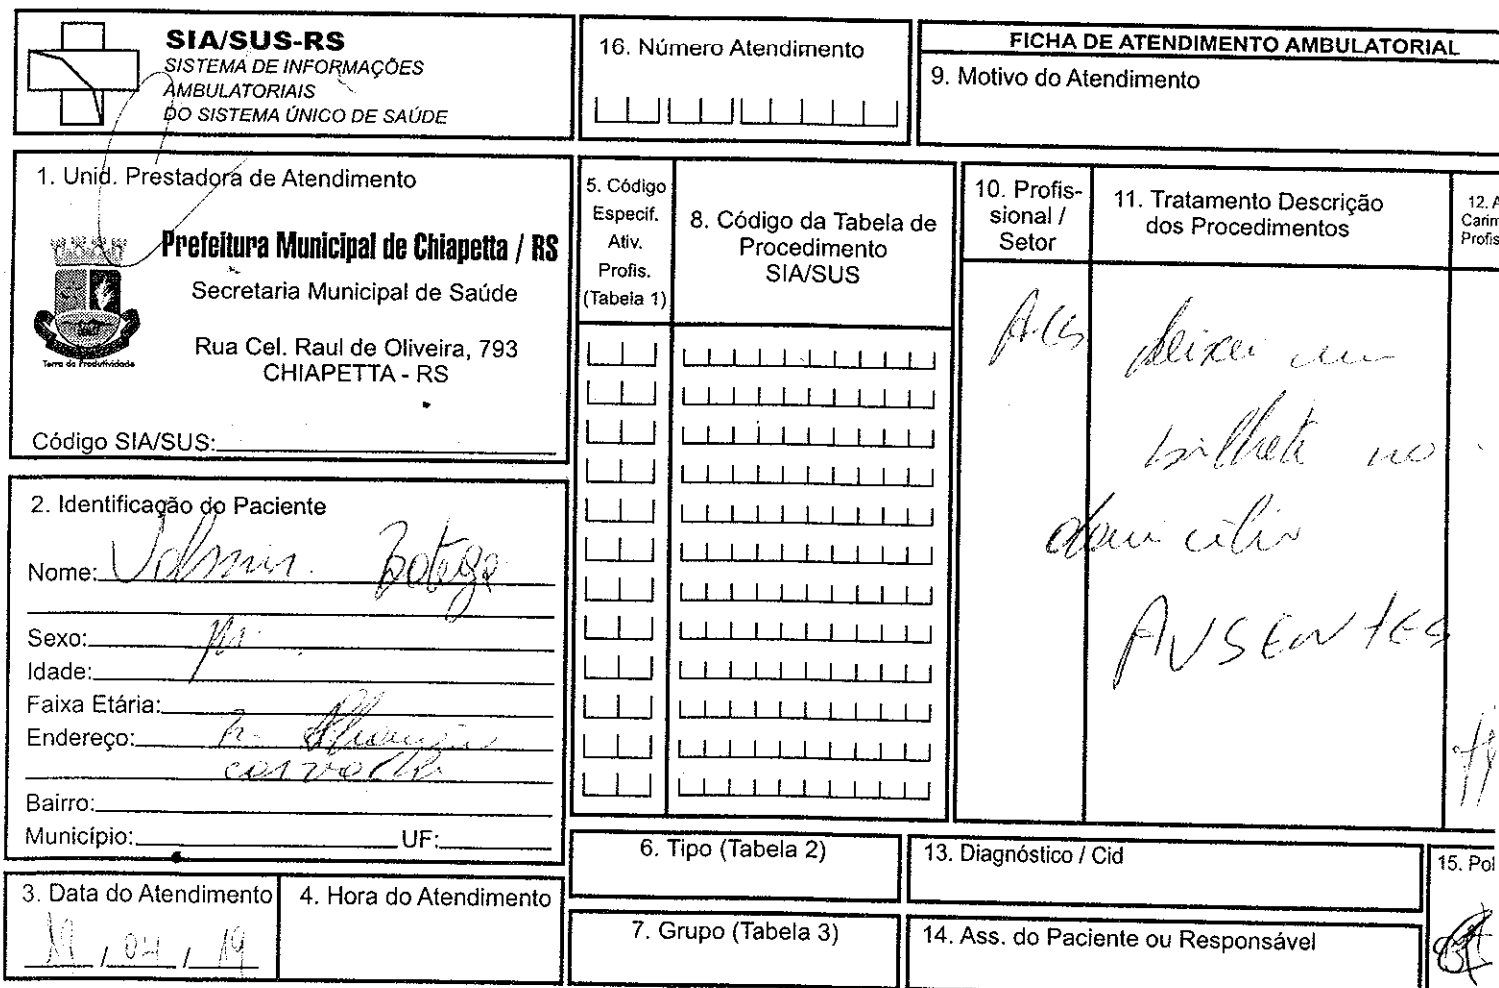 SIA/SUS-RS
SISTEMA DE INFORMAÇÕES
AMBULATORIAIS
DO SISTEMA ÚNICO DE SAÚDE
16. Número Atendimento
FICHA DE ATENDIMENTO AMBULATORIAL
9. Motivo do Atendimento
1. Unid. Prestadora de Atendimento
Prefeitura Municipal de Chiapetta / RS
Secretaria Municipal de Saúde
Terra da Produtividade
Rua Cel. Raul de Oliveira, 793
CHIAPETTA - RS
Código SIA/SUS:
2. Identificação do Paciente
Nome:
Sexo: M.
Idade:
Faixa Etária:
Endereço: R.
Bairro:
Município: UF:
3. Data do Atendimento
/ 04 / 19
4. Hora do Atendimento
5. Código
Especif.
Ativ.
Profis.
(Tabela 1)
8. Código da Tabela de
Procedimento
SIA/SUS
10. Profis-
sional /
Setor
ACS
11. Tratamento Descrição
dos Procedimentos
deixei um
bilhete no
domicílio
AUSENTES
12. A
Carim
Profis
6. Tipo (Tabela 2)
7. Grupo (Tabela 3)
13. Diagnóstico / Cid
14. Ass. do Paciente ou Responsável
15. Pol